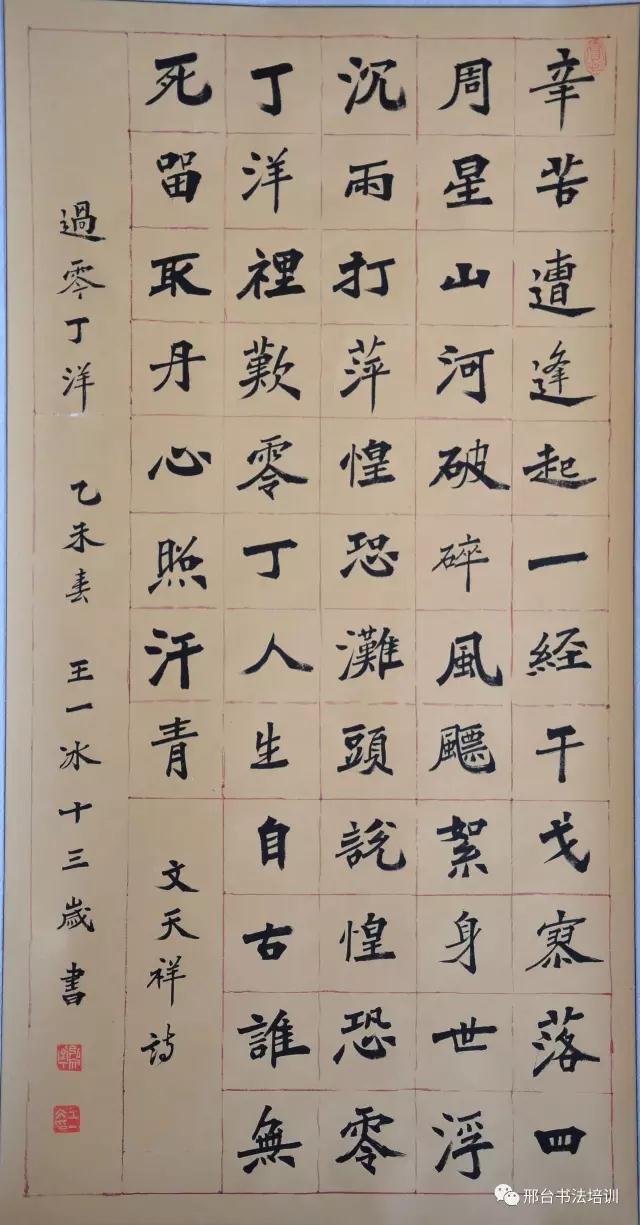 辛苦遭逢起一經干戈寥落四
周星山河破碎風飃絮身世浮
沉雨打萍惶恐灘頭說惶恐零
丁洋裡歎零丁人生自古誰無
死留取丹心照汗青 文天祥詩
過零丁洋 乙未春 王一冰十三歲書
邢台书法培训